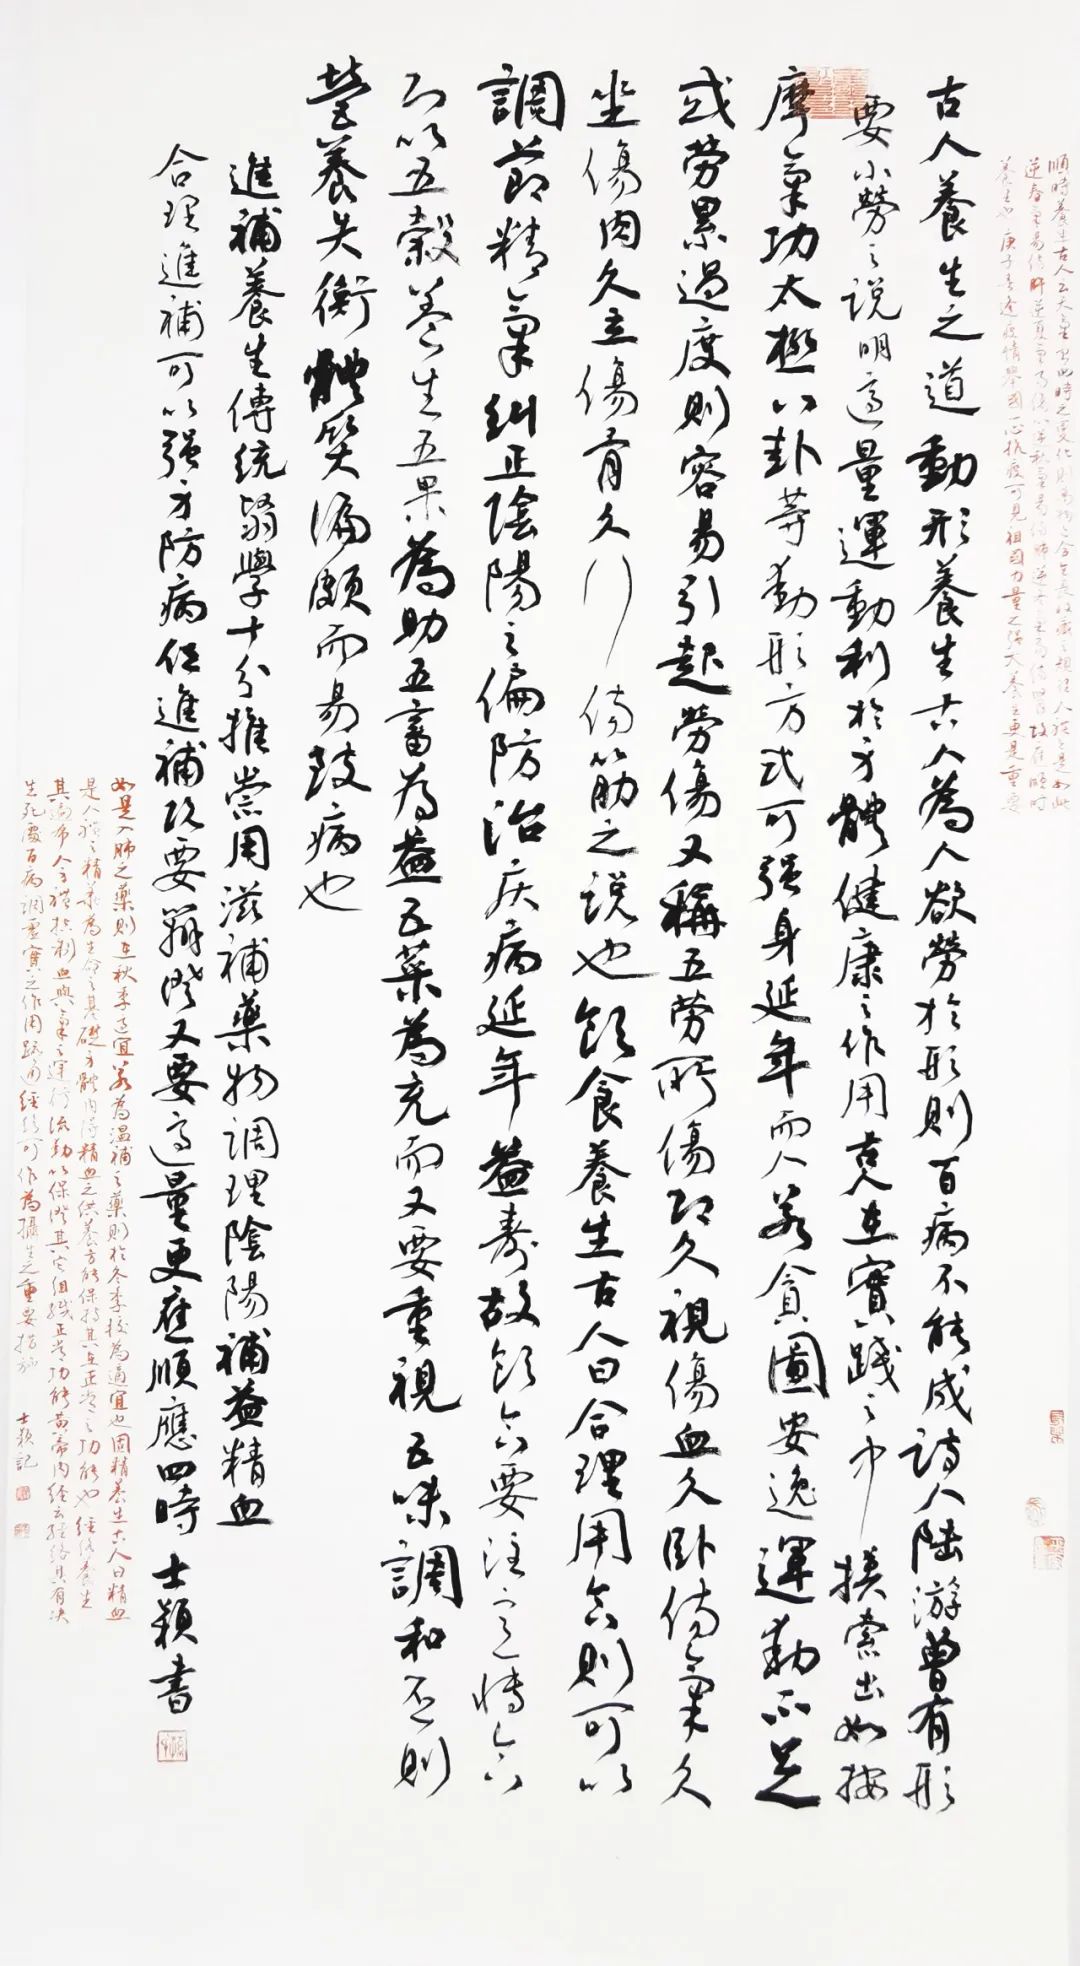 古人養生之道動形養生古人為人欲勞於形則百病不能成詩人陸游曾有形
要小勞之説明適量運動利於身體健康之作用古人在實踐之中摸索出如按
摩氣功太極八卦等動形方式可强身延年而人若貪圖安逸運動不足
或勞累過度則容易引起勞傷又稱五勞所傷即久視傷血久卧傷氣久
坐傷肉久立傷骨久行傷筋之説也飲食養生古人曰合理用食則可以
調節精氣糾正陰陽之偏防治疾病延年益壽故飲食要注意
而以五穀養生五果為助五畜為益五菜為充而又要重視五味調和否則
營養失衡體質偏頗而易致病也
進補養生傳統醫學十分推崇用滋補藥物調理陰陽補益精血
合理進補可以强身防病但進補既要辨證又要適量更應順應四時 士穎書
順時養生古人云天氣四時之變化則萬物之
養生也庚子春逢疫情舉國一心抗疫可見祖國力量之强大養生更是重要
如是入肺之藥則在秋季適宜若為温補之藥則於冬季較為適宜也固精養生古人曰精血
是人體之精華為生命之基礎身體内得精血之供養方能保持其正常之功能也經絡養生
其遍布人全體控制血與氣之運行流動以保證其它組織正常功能黄帝内經云經絡具有决
生死處百病調虚實之作用疏通經絡可作為攝生之重要措施 士穎記